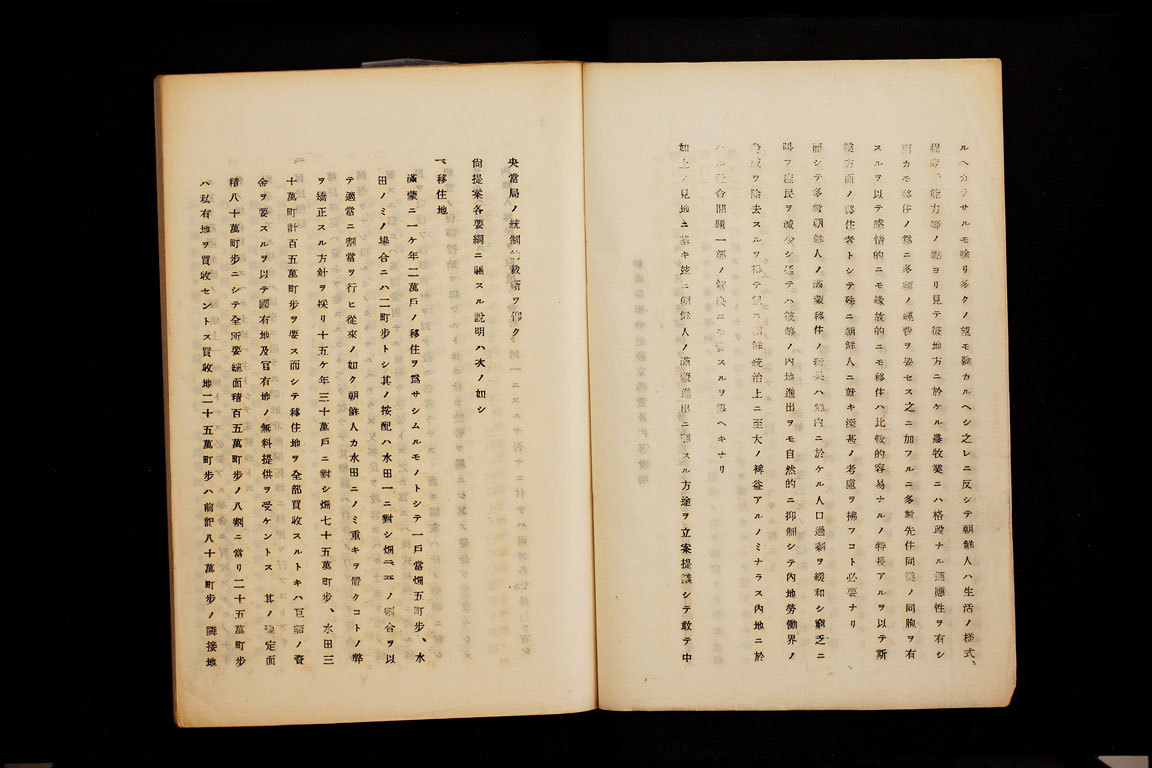 ルヘカラサルモ餘リ多クノ望モ難カルヘシ之レニ反シテ朝鮮人ハ生活ノ樣式、
程度、能力等ノ點ヨリ見テ彼地方ニ於ケル農牧業ニハ格段ナル適應性ヲ有シ
而カモ移住ノ爲ニ多額ノ經費ヲ要セス之ニ加フルニ多數先住同業ノ同胞ヲ有
スルヲ以テ感情的ニモ緣故的ニモ移住ハ比較的容易ナルノ特長アルヲ以テ斯
業方面ノ移住者トシテ殊ニ朝鮮人ニ就キ深甚ノ考慮ヲ拂フコト必要ナリ
而シテ多數朝鮮人ノ滿蒙移住ノ結果ハ鮮內ニ於ケル人口過剩ヲ緩和シ窮乏ニ
叫フ庶民ヲ減少シ延テハ彼等ノ內地進出ヲモ自然的ニ抑制シテ內地勞働界ノ
脅威ヲ除去スルヲ得テ ニ朝鮮統治上ニ至大ノ裨益アルノミナラス內地ニ於
ケル社會問題一部ノ解決ニモ資スルヲ得ヘキナリ
如上ノ見地ニ基キ玆ニ朝鮮人ノ滿蒙進出ニ關スル方途ヲ立案提議シテ敢テ中
央當局ノ統制 裁績ヲ仰ク
尙提案各要綱ニ關スル說明ハ次ノ如シ
一、移住地
滿蒙ニ一ケ年二萬戶ノ移住ヲ爲サシムルモノトシテ一戶當畑五町步、水
田ノミノ場合ニハ二町步トシ其ノ按配ハ水田一ニ對シ畑 ノ割合ヲ以
テ適當ニ割當ヲ行ヒ從來ノ如ク朝鮮人カ水田ニノミ重キヲ置クコトノ弊
ヲ矯正スル方針ヲ採リ十五ケ年三十萬戶ニ對シ畑七十五萬町步、水田三
十萬町計百五萬町步ヲ要ス而シテ移住地ヲ全部買收スルトキハ巨額ノ資
金ヲ要スルヲ以テ國有地及官有地ノ無料提供ヲ受ケントス 其ノ豫定面
積八十萬町步ニシテ全所要總面積百五萬町步ノ八割ニ當リ二十五萬町步
ハ私有地ヲ買收セントス買收地二十五萬町步ハ前記八十萬町步ノ隣接地